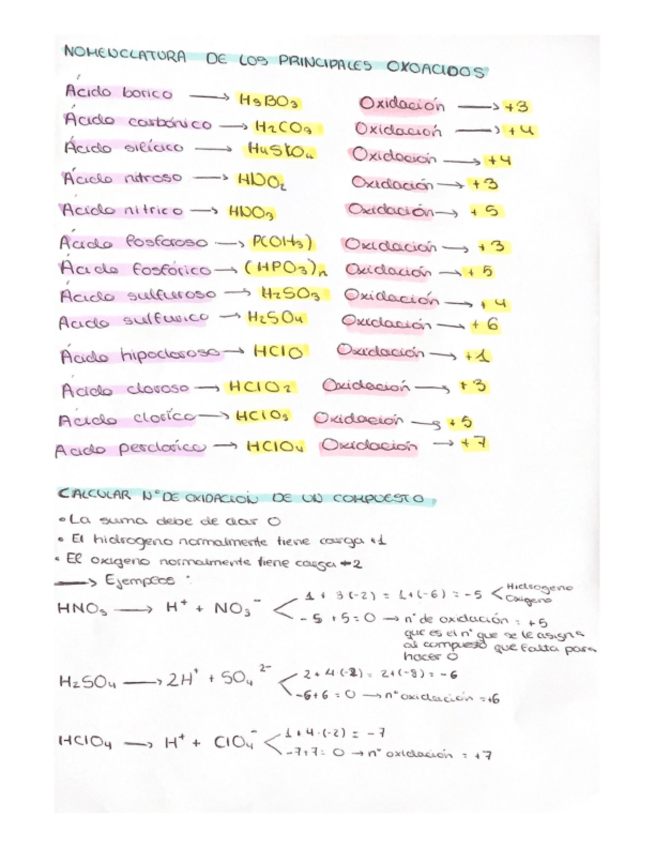 NOMENCLATURA DE LOS PRINCIPALES OXOACIDOS
Ácido borico → H3BO3 Oxidación → +3
Ácido carbónico → H2CO3 Oxidación → +4
Ácido silícico → H4SiO4 Oxidación → +4
Ácido nitroso → HNO2 Oxidación → +3
Ácido nitrico → HNO3 Oxidación → +5
Ácido fosforoso → P(OH3) Oxidación → +3
Ácido fosfórico → (HPO3)n Oxidación → +5
Ácido sulfuroso → H2SO3 Oxidación → +4
Ácido sulfurico → H2SO4 Oxidación → +6
Ácido hipocloroso → HClO Oxidación → +1
Ácido cloroso → HClO2 Oxidación → +3
Ácido clorico → HClO3 Oxidación → +5
Acido perclorico → HClO4 Oxidación → +7
CALCULAR Nº DE OXIDACION DE UN COMPUESTO,
• La suma debe de dar 0
• El hidrogeno normalmente tiene carga +1
• El oxigeno normalmente tiene carga -2
→ Ejemplos:
HNO3 → H+ + NO3- < 1 + 3(-2) = 1+(-6) = -5 < Hidrogeno
Oxigeno
-5 +5 = 0 → nº de oxidación = +5
que es el nº que se le asigna
al compuesto que falta para
hacer 0
H2SO4 → 2H+ + SO4 2- < 2+4·(-2) = 2+(-8) = -6
-6+6 = 0 → nº oxidación = +6
HClO4 → H+ + ClO4- < 1+4·(-2) = -7
-7+7 = 0 → nº oxidación = +7